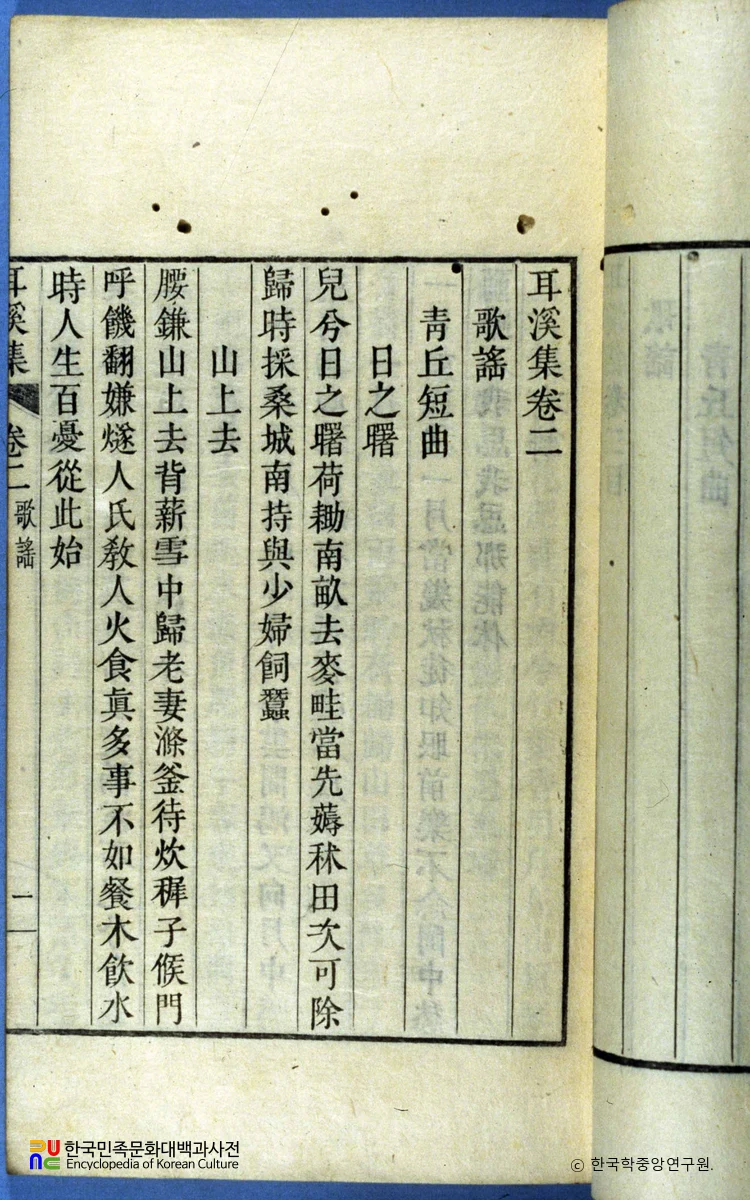 耳溪集卷二
歌謠
青丘短曲
日之曙
兒兮日之曙荷耡南畝去麥畦當先薅秫田次可除
歸時採桑城南持與少婦飼蠶
山上去
腰鎌山上去背薪雪中歸老妻滌釜待炊稺子候門
呼饑翻嫌燧人氏敎人火食眞多事不如餐木飮水
時人生百憂從此始
耳溪集 卷二 歌謠 一
한국민족문화대백과사전
Encyclopedia of Korean Culture
ⓒ 한국학중앙연구원.